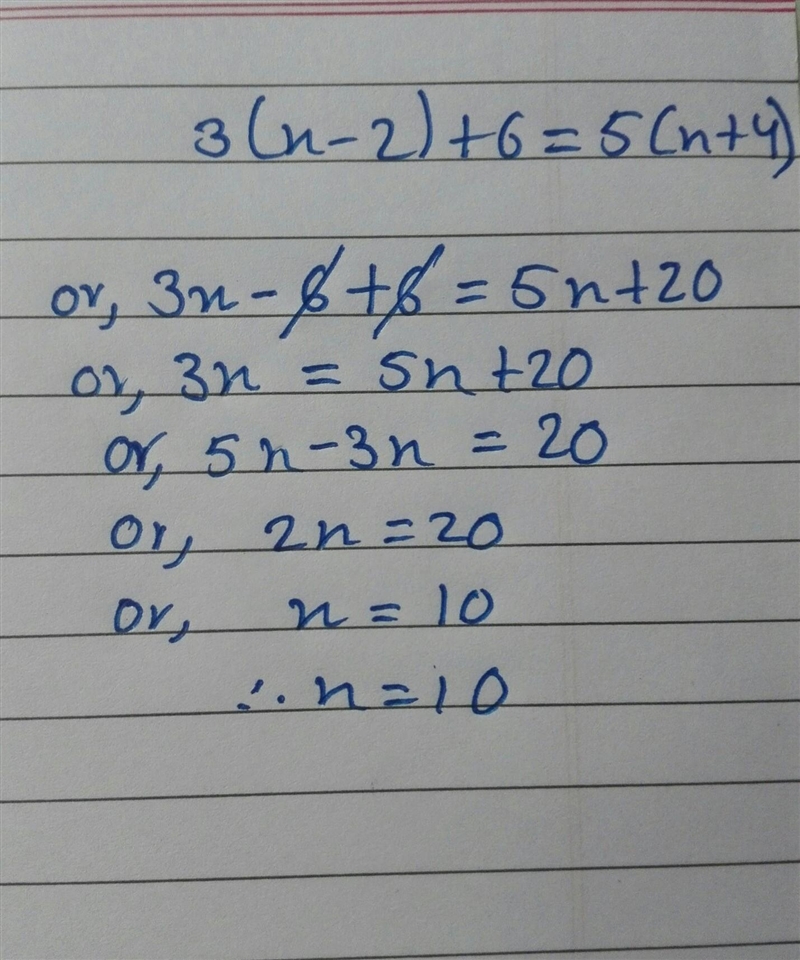 3(n-2)+6=5(n+4)
or, 3n-6+6=5n+20
or, 3n = 5n+20
or, 5n-3n = 20
or, 2n=20
or, n=10
∴ n=10